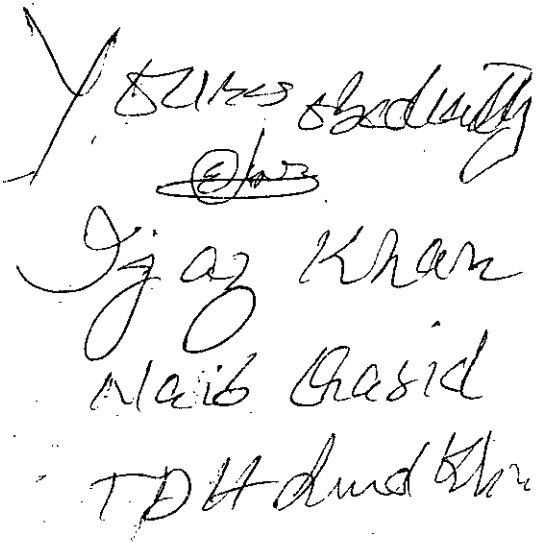 Yours obediently
Ijaz Khan
Naib Qasid
TDH